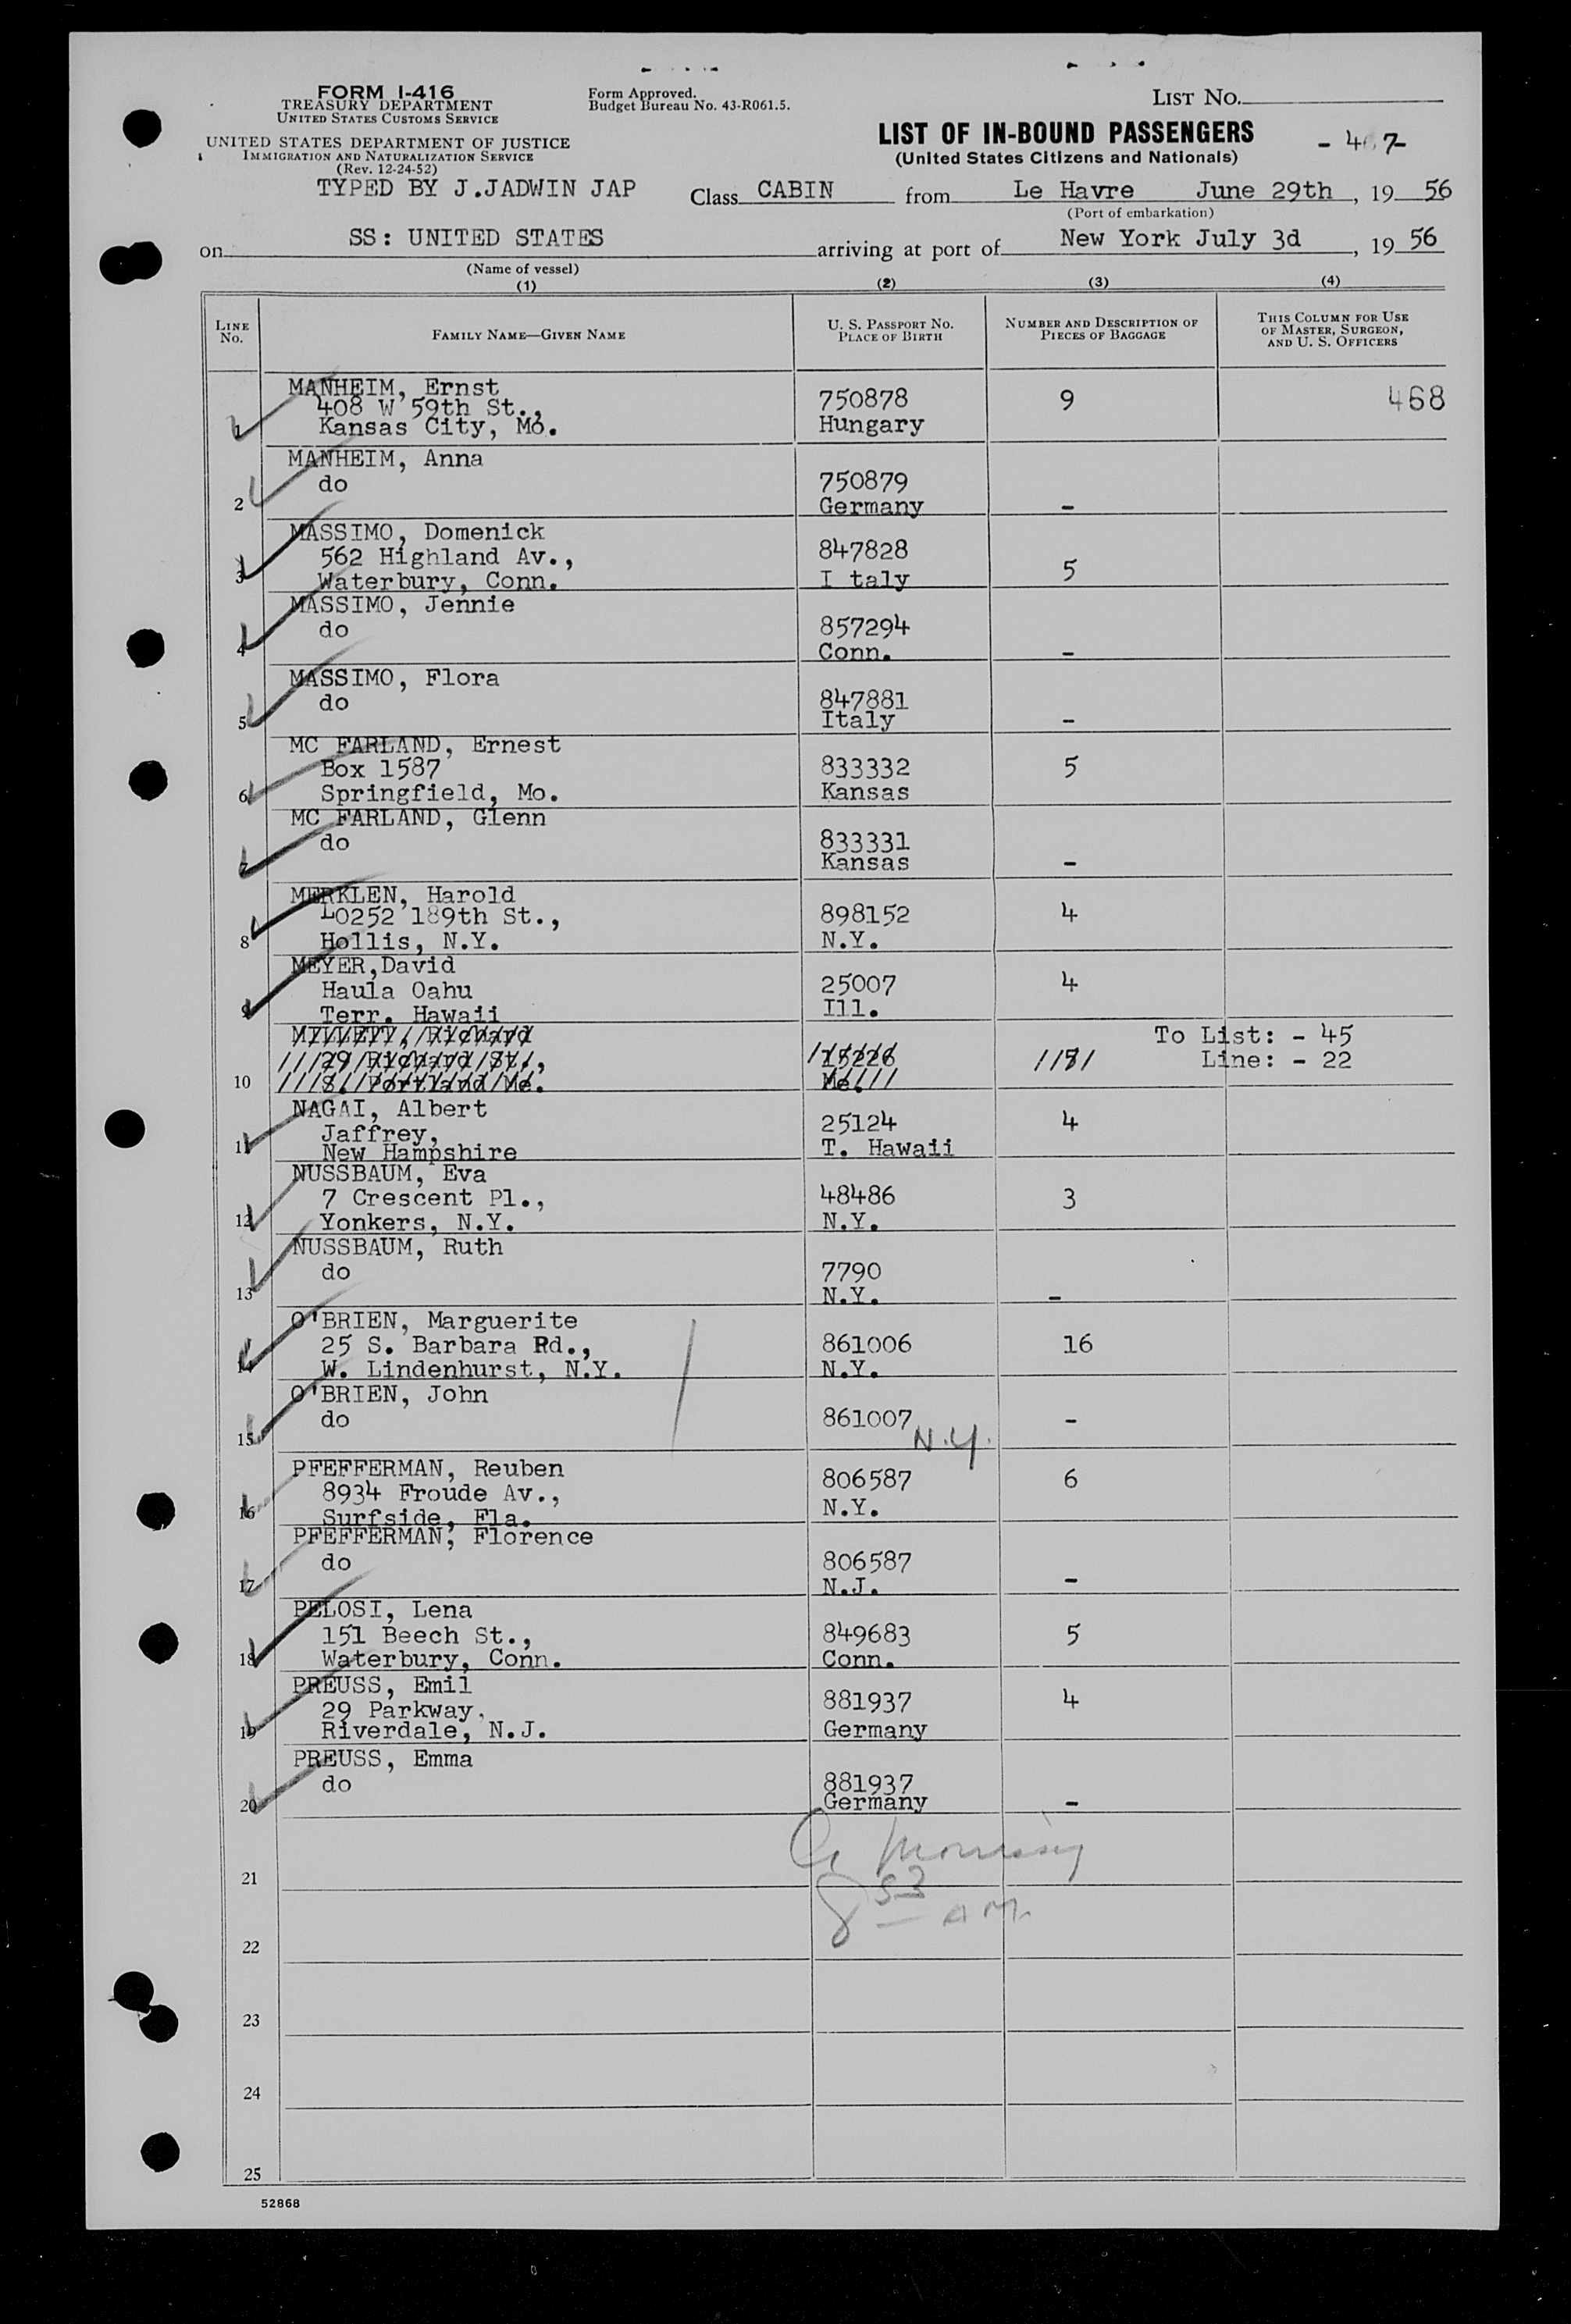 FORM I-416
TREASURY DEPARTMENT
UNITED STATES CUSTOMS SERVICE
UNITED STATES DEPARTMENT OF JUSTICE
IMMIGRATION AND NATURALIZATION SERVICE
(Rev. 12-24-52)
TYPED BY J.JADWIN JAP
Form Approved.
Budget Bureau No. 43-R061.5.
LIST NO.
LIST OF IN-BOUND PASSENGERS
(United States Citizens and Nationals)
- 467-
Class CABIN from Le Havre June 29th, 19 56
(Port of embarkation)
on SS: UNITED STATES arriving at port of New York July 3d, 19 56
(Name of vessel)
(1) (2) (3) (4)
LINE NO. FAMILY NAME—GIVEN NAME U. S. PASSPORT NO. PLACE OF BIRTH NUMBER AND DESCRIPTION OF PIECES OF BAGGAGE THIS COLUMN FOR USE OF MASTER, SURGEON, AND U. S. OFFICERS
MANHEIM, Ernst
408 W 59th St., 750878 9 468
1 Kansas City, Mo. Hungary
MANHEIM, Anna
do 750879
2 Germany -
MASSIMO, Domenick
562 Highland Av., 847828
3 Waterbury, Conn. I taly 5
MASSIMO, Jennie
do 857294
4 Conn. -
MASSIMO, Flora
do 847881
5 Italy -
MC FARLAND, Ernest
Box 1587 833332 5
6 Springfield, Mo. Kansas
MC FARLAND, Glenn
do 833331
7 Kansas -
MERKLEN, Harold
L0252 189th St., 898152 4
8 Hollis, N.Y. N.Y.
MEYER,David
Haula Oahu 25007 4
9 Terr. Hawaii Ill.
MILLETT, Richard To List: - 45
29 Richard St., 15226 Line: - 22
10 S. Portland Me. Me.
NAGAI, Albert
Jaffrey, 25124 4
11 New Hampshire T. Hawaii
NUSSBAUM, Eva
7 Crescent Pl., 48486 3
12 Yonkers, N.Y. N.Y.
NUSSBAUM, Ruth
do 7790
13 N.Y. -
O'BRIEN, Marguerite
25 S. Barbara Rd., 861006 16
14 W. Lindenhurst, N.Y. N.Y.
O'BRIEN, John
do 861007 -
15 N.Y.
PFEFFERMAN, Reuben
8934 Froude Av., 806587 6
16 Surfside, Fla. N.Y.
PFEFFERMAN, Florence
do 806587
17 N.J. -
PELOSI, Lena
151 Beech St., 849683 5
18 Waterbury, Conn. Conn.
PREUSS, Emil
29 Parkway, 881937 4
19 Riverdale, N.J. Germany
PREUSS, Emma
do 881937
20 Germany -
21
8 53 AM
22
23
24
25
52868